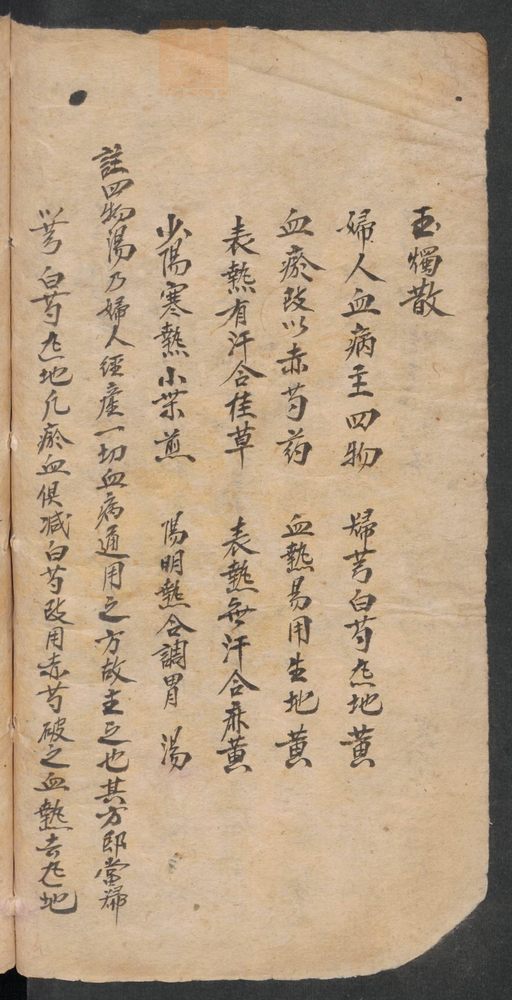 玉燭散
婦人血病主四物　歸芎白芍熟地黃
血瘀改以赤芍药　血熱易用生地黄
表熱有汗合桂草　表熱無汗合麻黄
少陽寒熱小柴煎　陽明熱合調胃湯
註四物湯乃婦人經產一切血病通用之方故主之也其方即當歸
川芎白芍熟地凡瘀血俱减白芍改用赤芍破之血熱去熟地